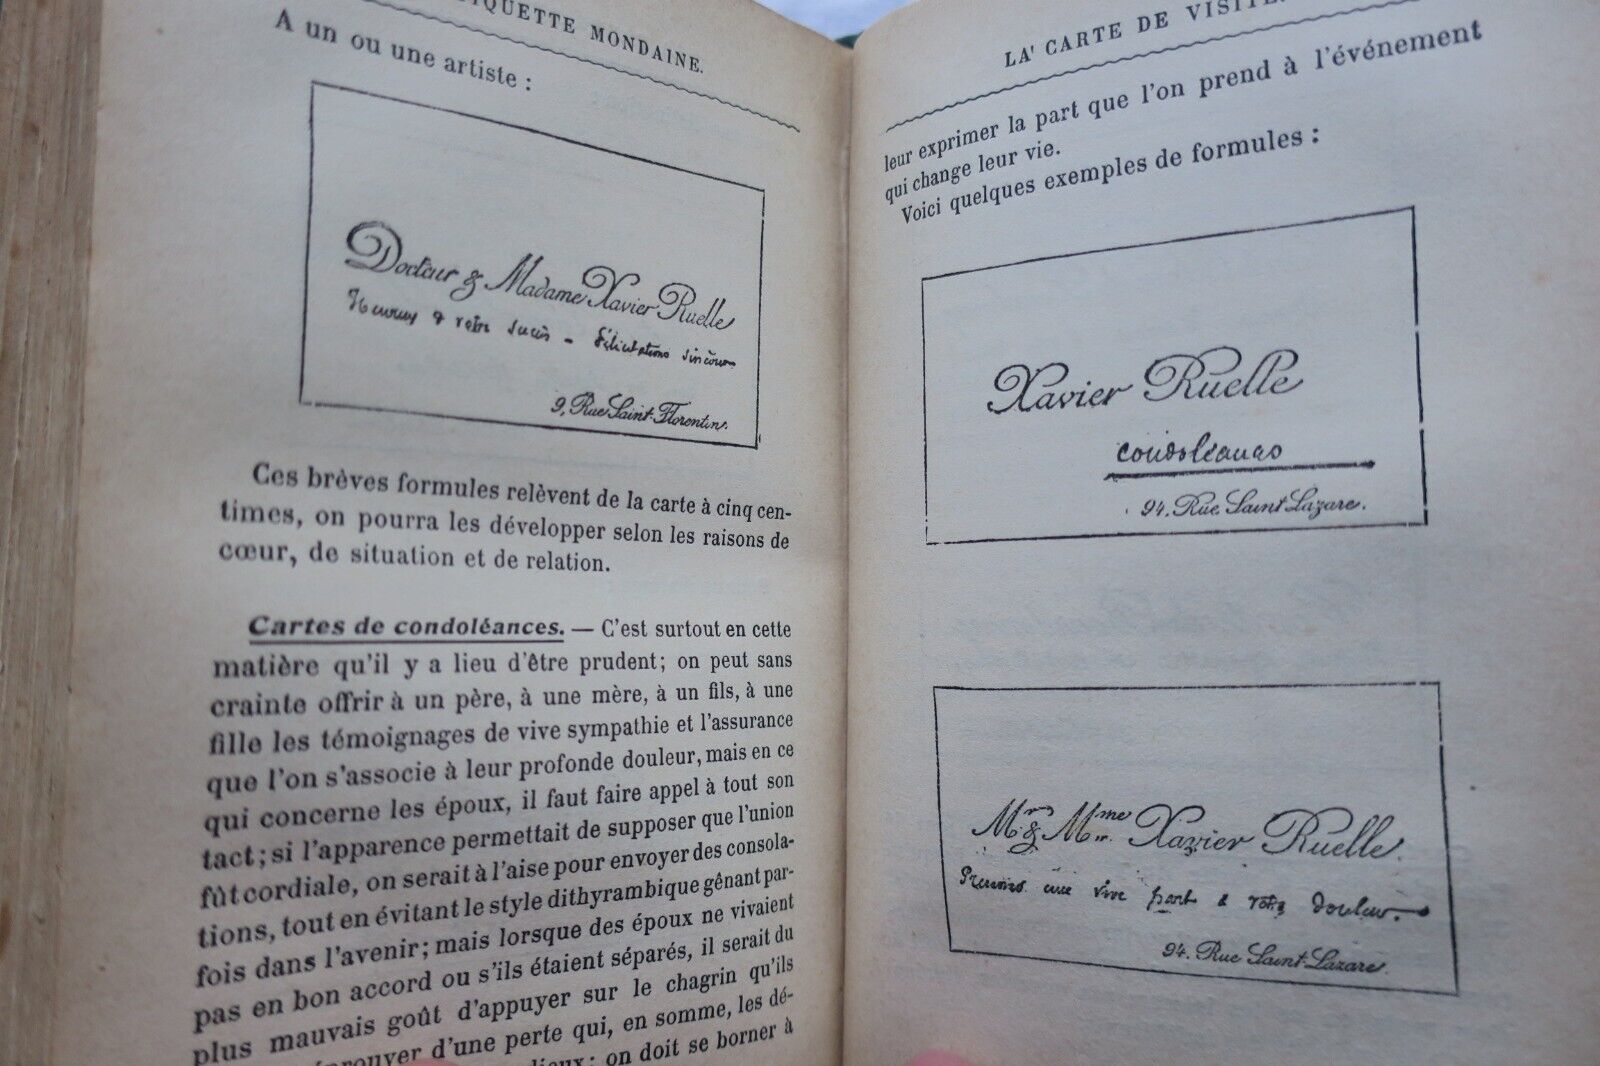 ÉTIQUETTE MONDAINE.
A un ou une artiste :
Docteur & Madame Xavier Ruelle
Heureux de votre succès – Félicitations sincères
9, Rue Saint-Florentin.
Ces brèves formules relèvent de la carte à cinq cen-
times, on pourra les développer selon les raisons de
cœur, de situation et de relation.
Cartes de condoléances. — C'est surtout en cette
matière qu'il y a lieu d'être prudent; on peut sans
crainte offrir à un père, à une mère, à un fils, à une
fille les témoignages de vive sympathie et l'assurance
que l'on s'associe à leur profonde douleur, mais en ce
qui concerne les époux, il faut faire appel à tout son
tact; si l'apparence permettait de supposer que l'union
fût cordiale, on serait à l'aise pour envoyer des consola-
tions, tout en évitant le style dithyrambique gênant par-
fois dans l'avenir; mais lorsque des époux ne vivaient
pas en bon accord ou s'ils étaient séparés, il serait du
plus mauvais goût d'appuyer sur le chagrin qu'ils
d'une perte qui, en somme, les dé-
on doit se borner à
LA CARTE DE VISITE.
leur exprimer la part que l'on prend à l'événement
qui change leur vie.
Voici quelques exemples de formules :
Xavier Ruelle
condoléances
94, Rue Saint-Lazare.
Mr & Mme Xavier Ruelle.
Prennent une vive part à votre douleur.
94, Rue Saint-Lazare.